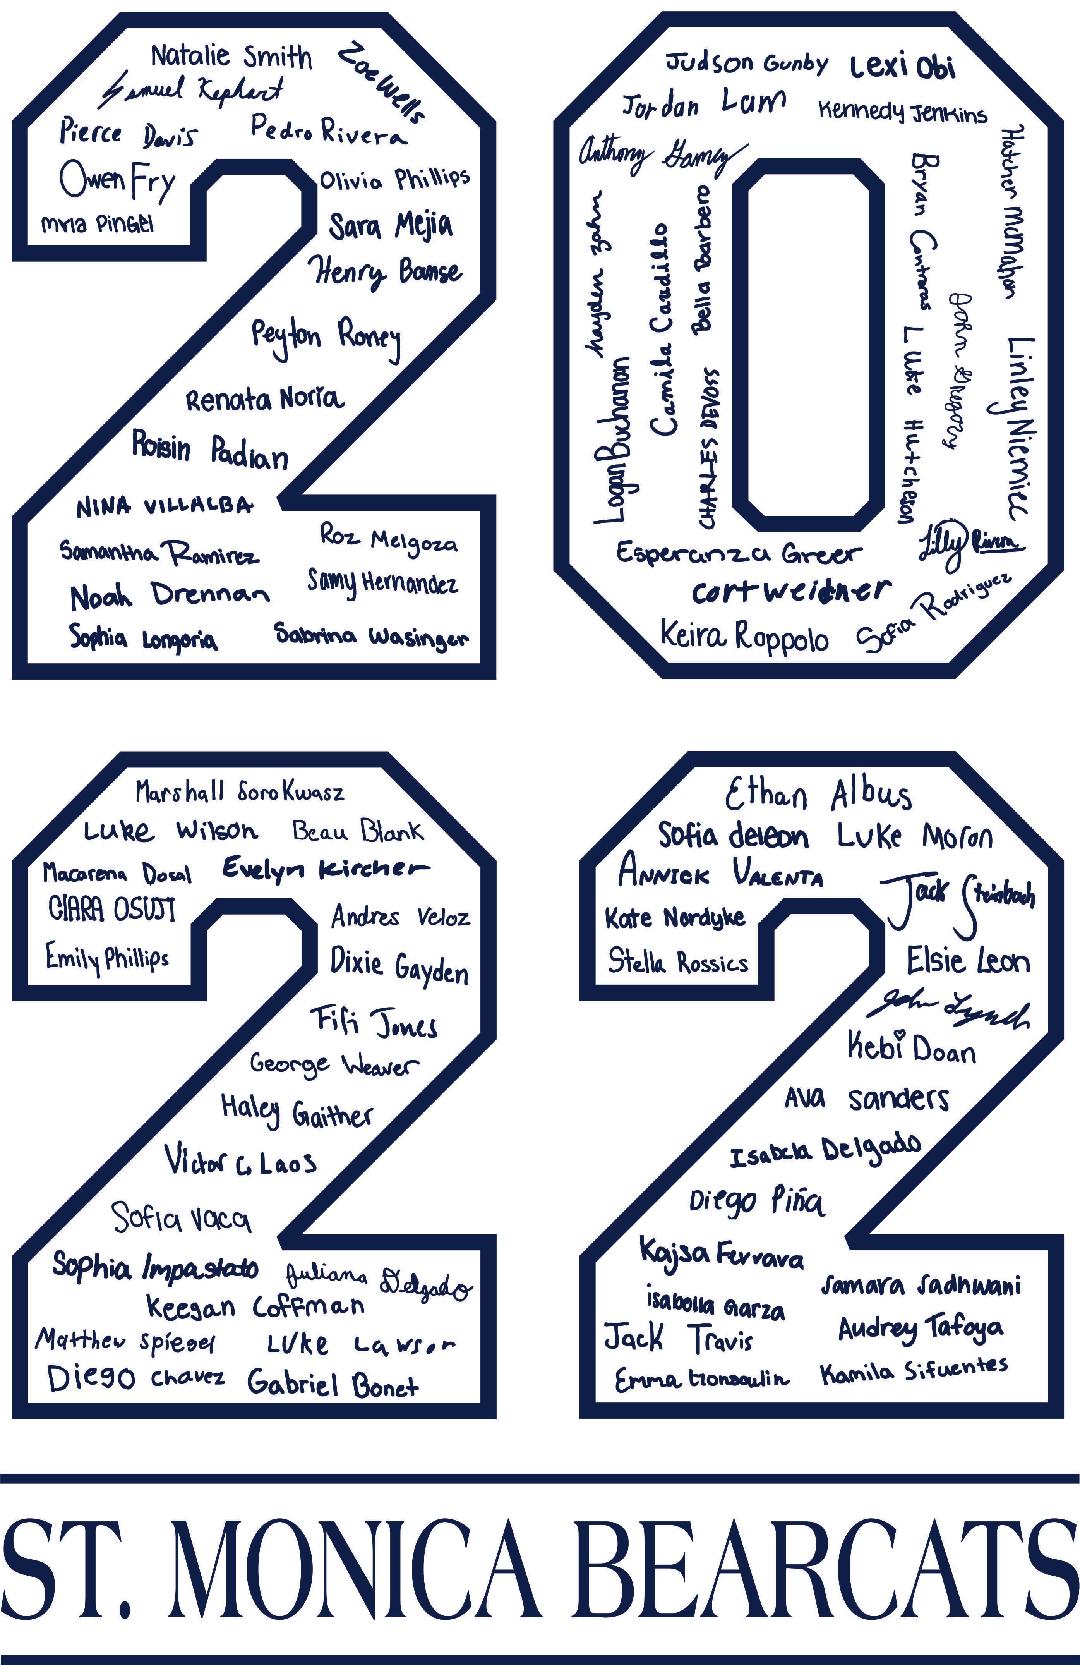 Natalie Smith
Zoe Wells
Samuel Kephart
Pierce Davis
Pedro Rivera
Owen Fry
Olivia Phillips
Myla Pingel
Sara Mejia
Henry Banse
Peyton Roney
Renata Noria
Roisin Padian
NINA VILLALBA
Samantha Ramirez
Roz Melgoza
Noah Drennan
Samy Hernandez
Sophia Longoria
Sabrina Wasinger
Judson Gunby
Lexi Obi
Jordan Lam
Kennedy Jenkins
Anthony Gamez
hayden zahn
Logan Buchanan
Camila Caudillo
Bella Barbero
CHARLES DEVOSS
Bryan Contreras
Luke Hutcheson
John Gregory
Hatcher McMahon
Linley Niemiec
Esperanza Greer
Lilly Rivera
cort weidner
Sofia Rodriguez
Keira Roppolo
Marshall SoroKwasz
Luke Wilson
Beau Blank
Macarena Dosal
Evelyn Kircher
CIARA OSUJI
Andres Veloz
Emily Phillips
Dixie Gayden
Fifi Jones
George Weaver
Haley Gaither
Victor C. Laos
Sofia Vaca
Sophia Impastato
Juliana Delgado
Keegan Coffman
Matthew Spiegel
LUKE Lawson
Diego Chavez
Gabriel Bonet
Ethan Albus
Sofia deleon
Luke Moron
Annick Valenta
Jack Steinbach
Kate Nordyke
Stella Rossics
Elsie Leon
John Lynch
Kebi Doan
Ava Sanders
Isabela Delgado
Diego Piña
Kajsa Ferrara
Samara Sadhwani
isabella Garza
Jack Travis
Audrey Tafoya
Emma Gonsoulin
Kamila Sifuentes
ST. MONICA BEARCATS